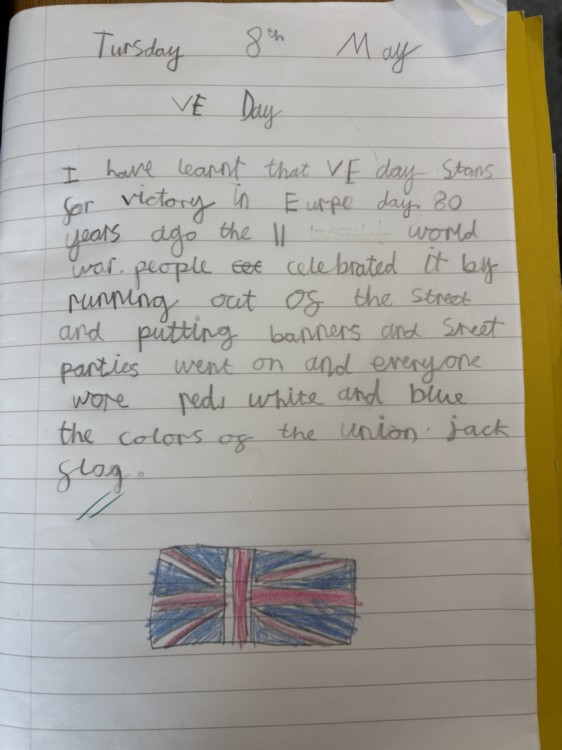 Tursday 8th May
VE Day
I have learnt that VE day Stans
for victory in Eurpe day. 80
years ago the II world
war. people celebrated it by
running out of the street
and putting banners and sreet
parties went on and everyone
wore red, white and blue
the colors of the union jack
flag.